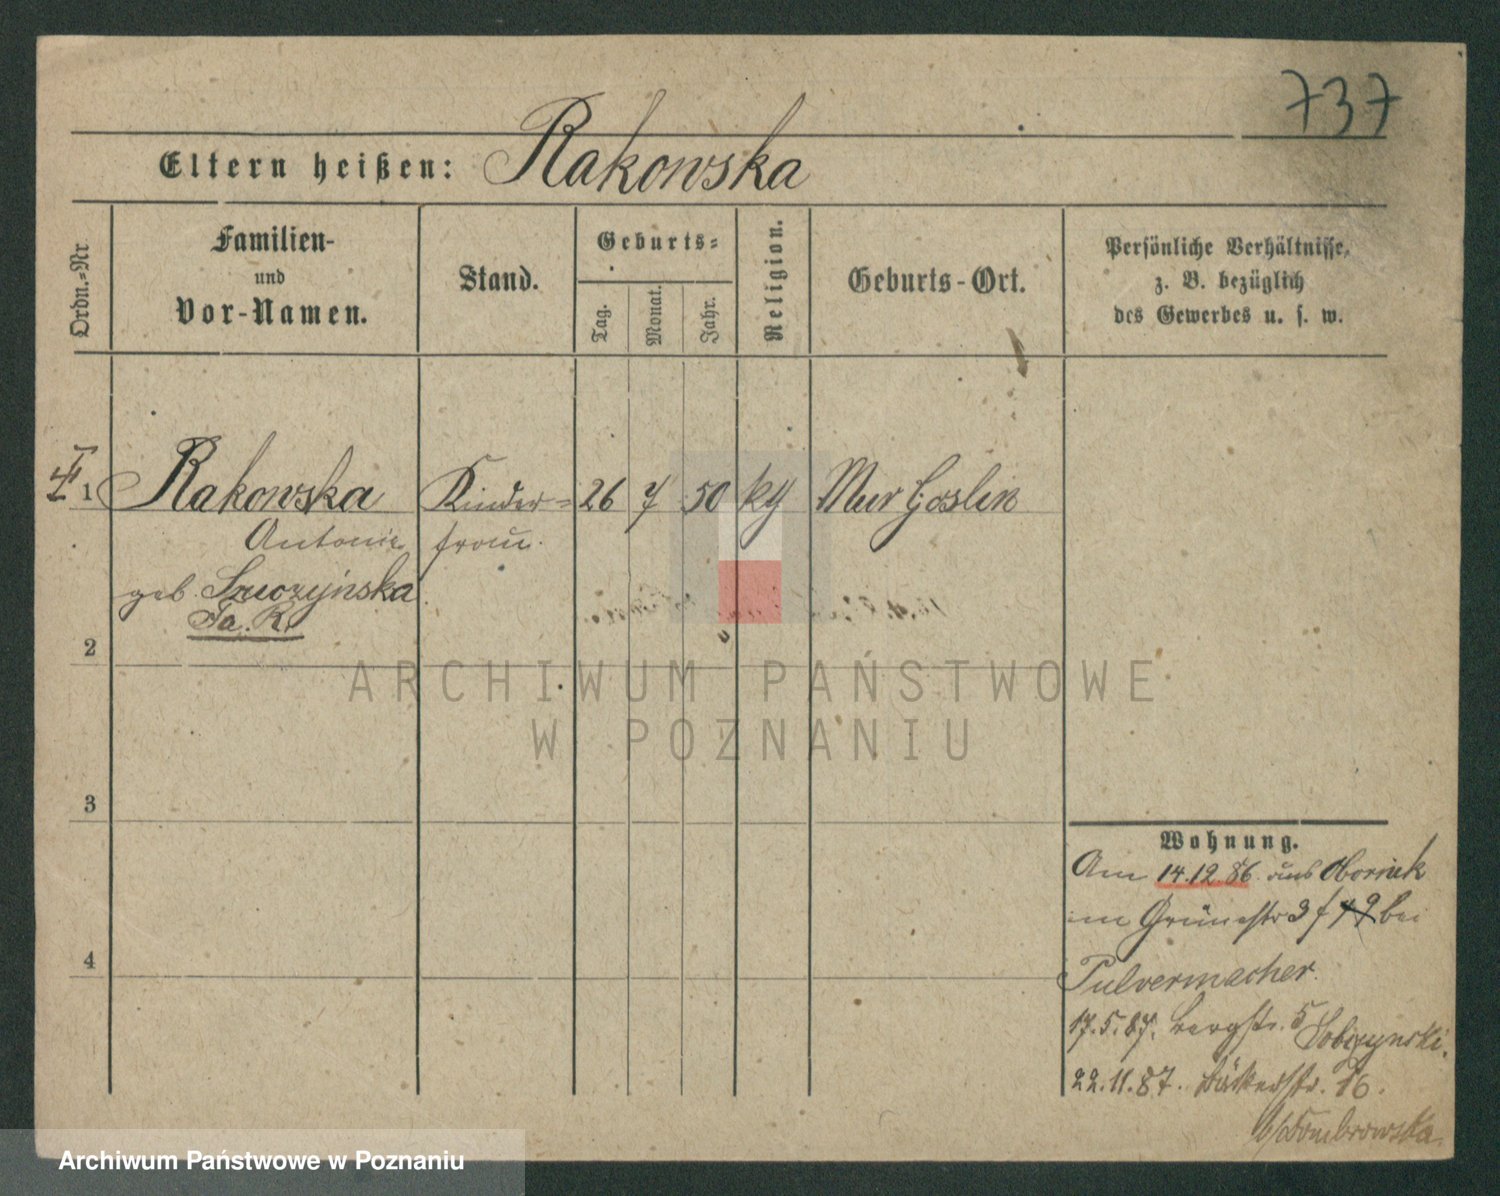 737
Eltern heißen: Rakowska
Ordn.-Nr.
Familien-
und
Vor-Namen.
Stand.
Geburts-
Tag.
Monat.
Jahr.
Religion.
Geburts-Ort.
Persönliche Verhältnisse,
z. B. bezüglich
des Gewerbes u. s. w.
1 Rakowska Kinder= 26 7 50 kg Mur Goslin
Antonie frau.
geb
Fa. R.
2
3
4
Wohnung.
Am 14.12.86. aus Obornik
im Grünestr 3 bei
Pulvermacher.
17.5.87. Bergstr. 5 Sobczynski.
22.11.87. Bäckerstr. 16.
b/Dombrowska.
ARCHIWUM PAŃSTWOWE
W POZNANIU
Archiwum Państwowe w Poznaniu